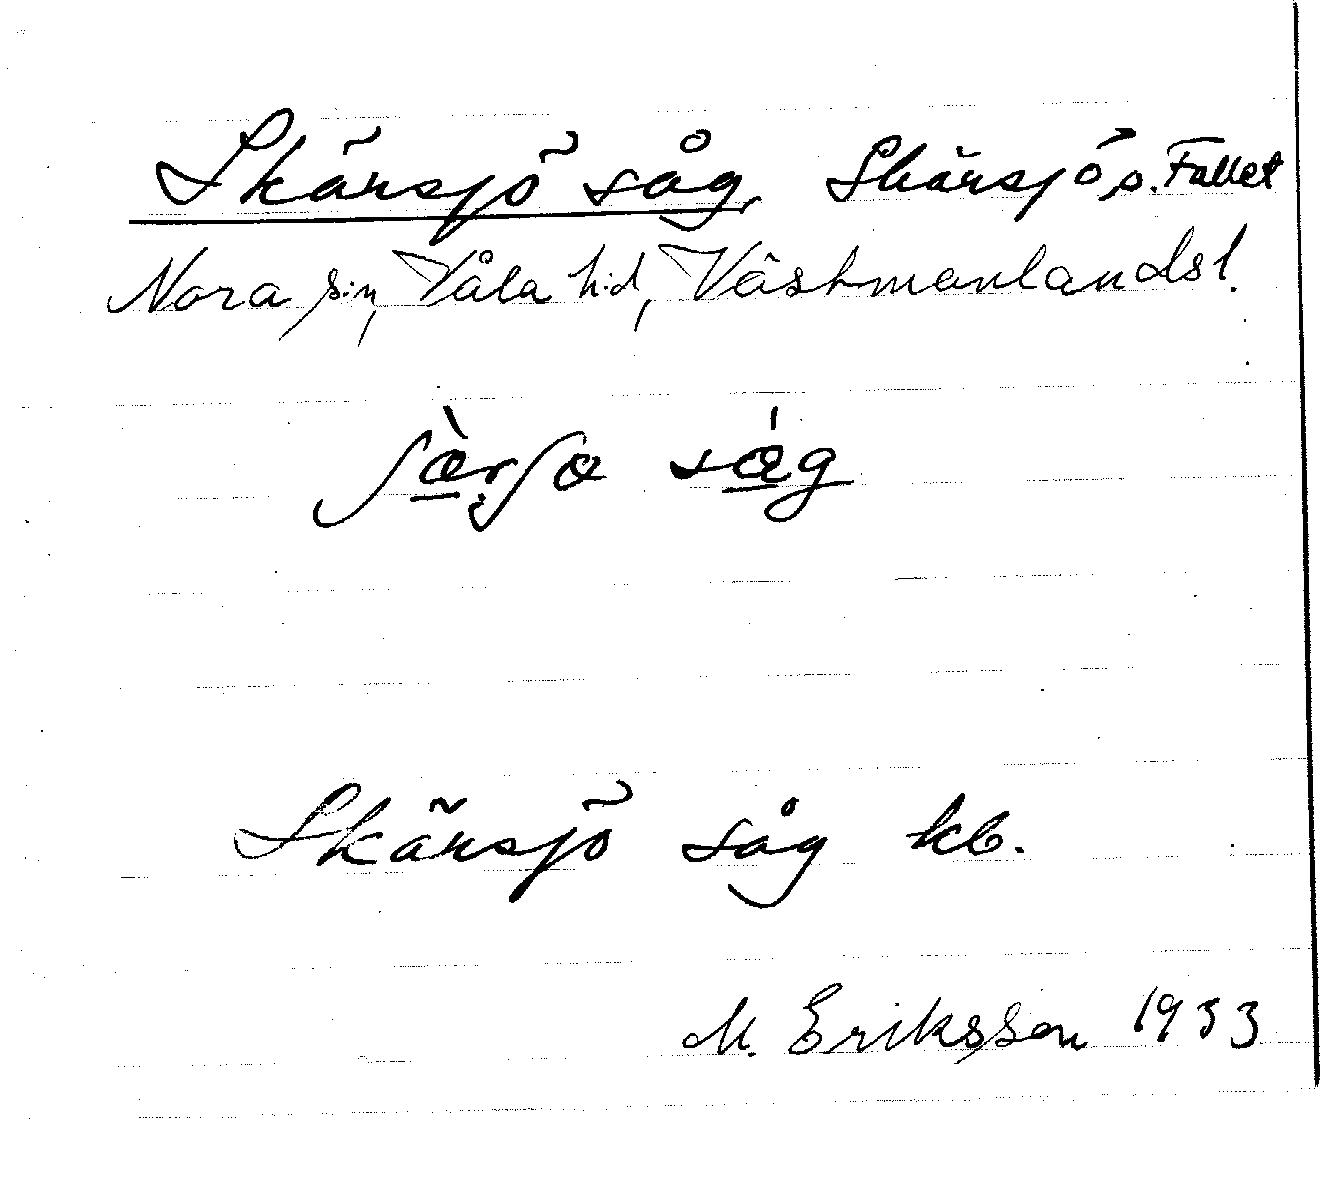 Skärsjö såg, Skärsjö, s. Fallet
Nora s:n, Våla h:d, Västmanlands l.
ʃæ̀rʃø ság
Skärsjö såg kb.
M. Eriksson 1933